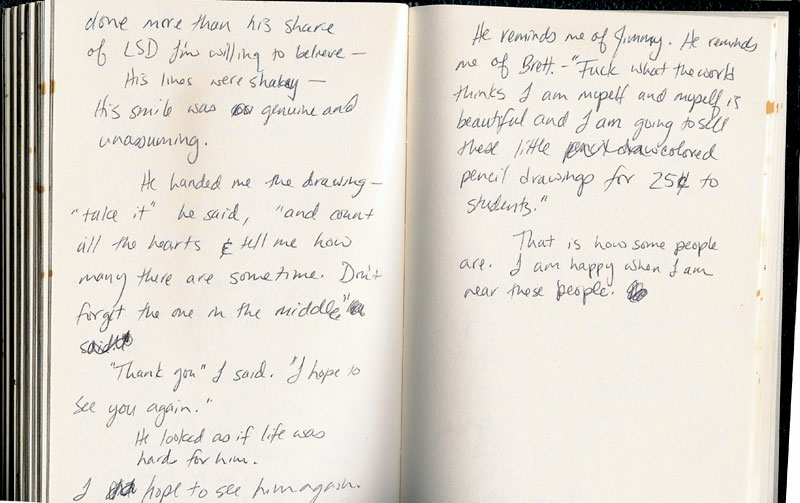 done more than his share
of LSD I'm willing to believe –
His lines were shakey –
His smile was genuine and
unassuming.
He handed me the drawing –
"take it" he said, "and count
all the hearts & tell me how
many there are sometime. Don't
forget the one in the middle"
said.
"Thank you" I said. "I hope to
see you again."
He looked as if life was
hard for him.
I hope to see him again.
He reminds me of Jimmy. He reminds
me of Brett. – "Fuck what the world
thinks I am myself and myself is
beautiful and I am going to sell
these little pencil draw colored
pencil drawings for 25¢ to
students."
That is how some people
are. I am happy when I am
near these people.